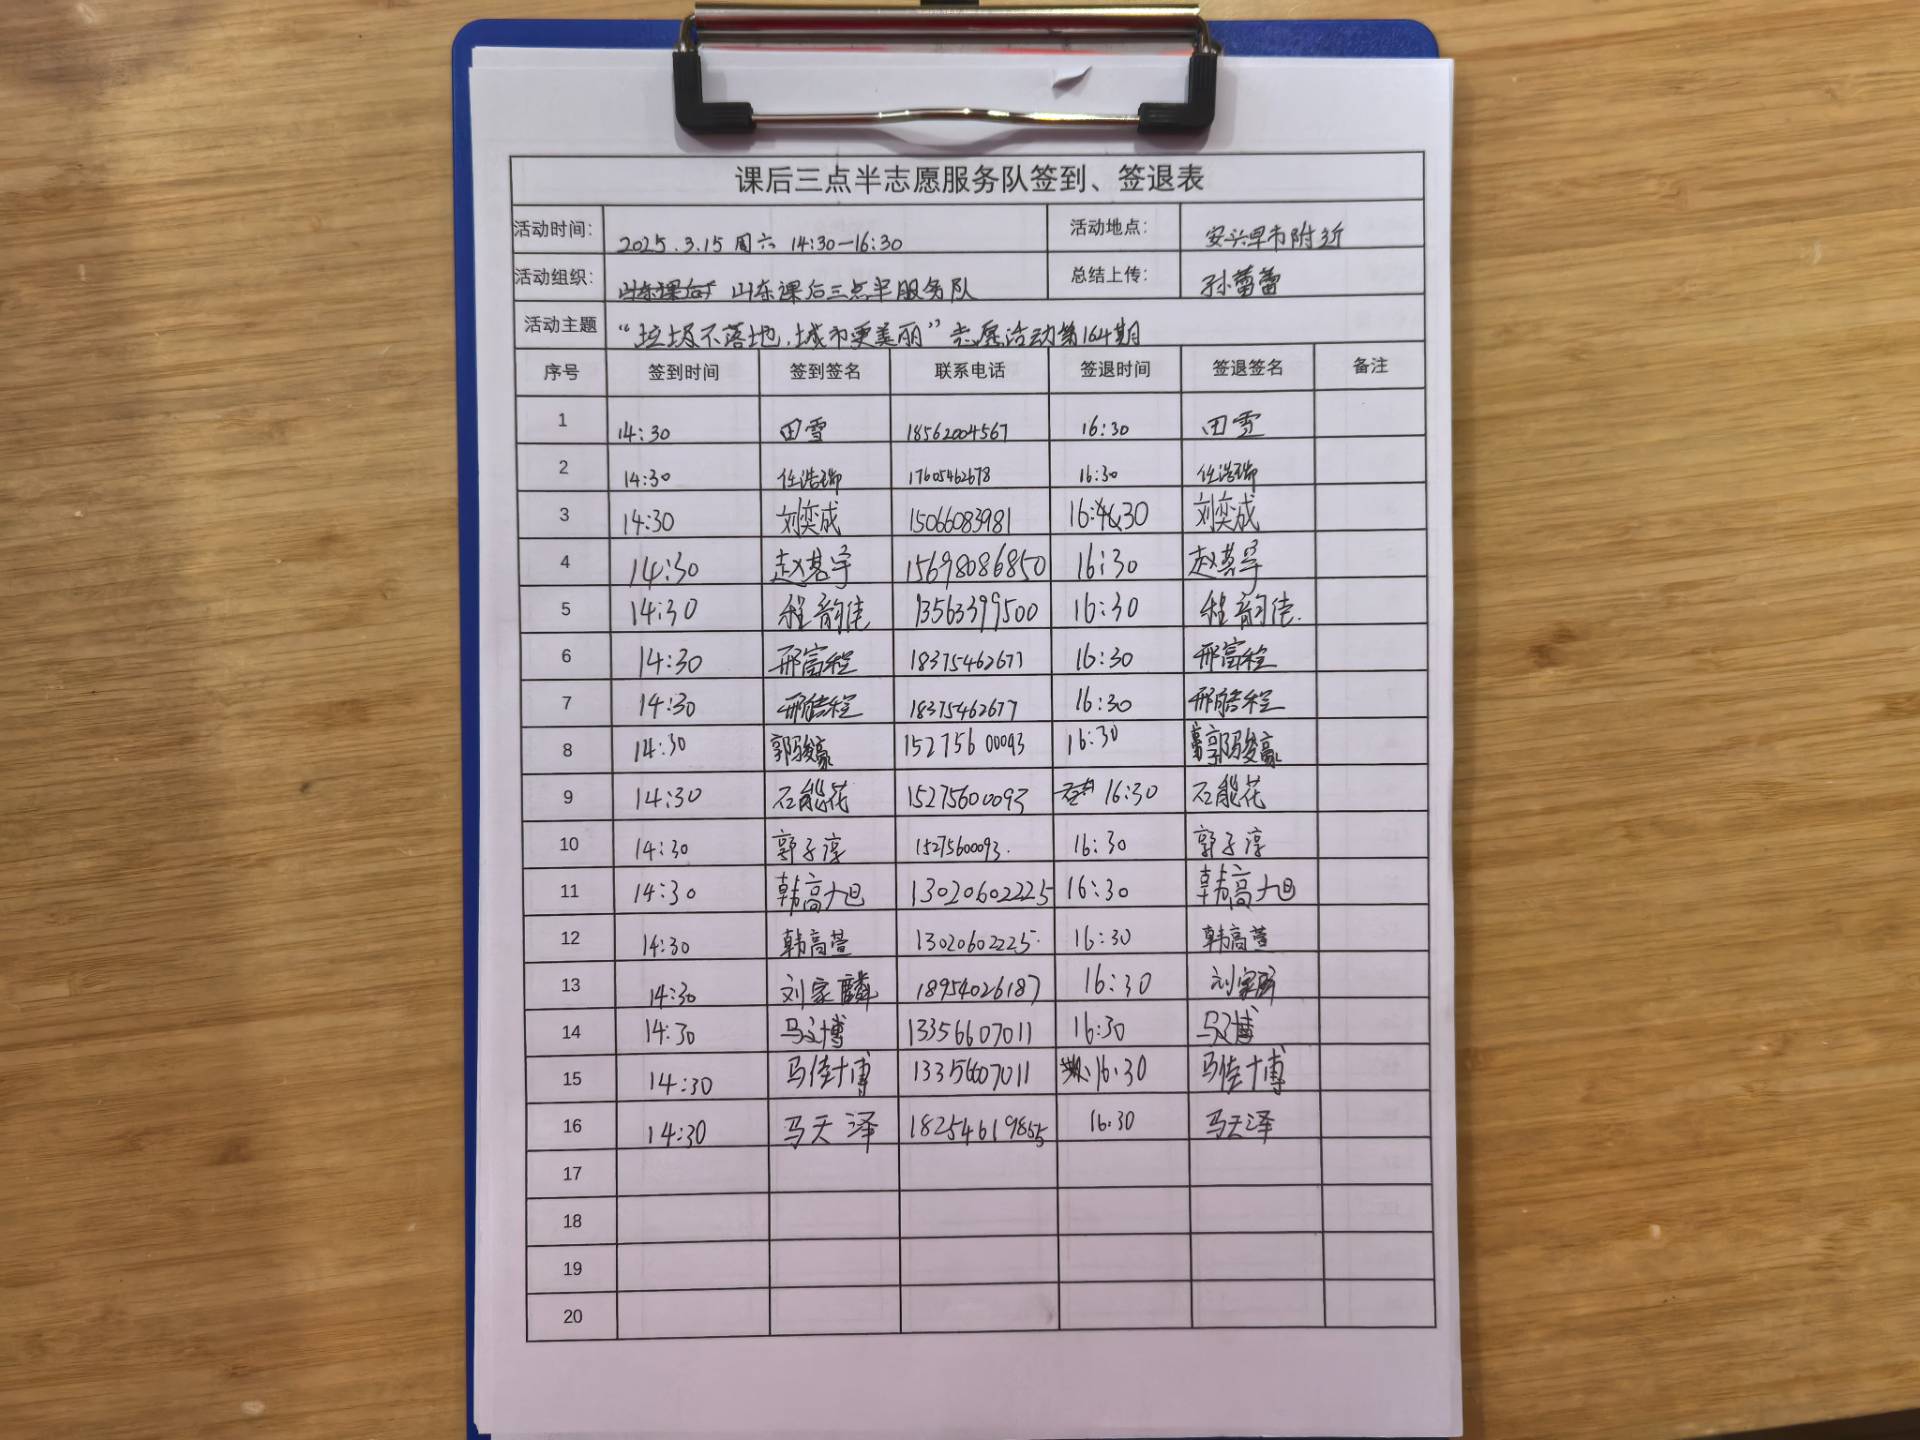 课后三点半志愿服务队签到、签退表
活动时间： 2025.3.15 周六 14:30—16:30 活动地点： 安兴早市附近
活动组织： 山东课后三点半服务队 总结上传： 孙蕾蕾
活动主题 “垃圾不落地,城市更美丽”志愿活动第164期
序号 签到时间 签到签名 联系电话 签退时间 签退签名 备注
1 14:30 田雪 18562004567 16:30 田雪
2 14:30 任浩瑞 17605462678 16:30 任浩瑞
3 14:30 刘奕成 15066083981 16:30 刘奕成
4 14:30 赵茗宇 15698086850 16:30 赵茗宇
5 14:30 程韵佳 13563399500 16:30 程韵佳.
6 14:30 邢富程 18375462677 16:30 邢富程
7 14:30 邢皓程 18375462677 16:30 邢皓程
8 14:30 郭骏豪 15275600093 16:30 郭骏豪
9 14:30 石能花 15275600093 16:30 石能花
10 14:30 郭子淳 15275600093. 16:30 郭子淳
11 14:30 韩高旭 13020602225 16:30 韩高旭
12 14:30 韩高萱 13020602225. 16:30 韩高萱
13 14:30 刘家麟 18954026187 16:30 刘家
14 14:30 马文博 13356607011 16:30 马文博
15 14:30 马佳博 13356607011 16:30 马佳博
16 14:30 马天泽 18254619855 16:30 马天泽
17
18
19
20